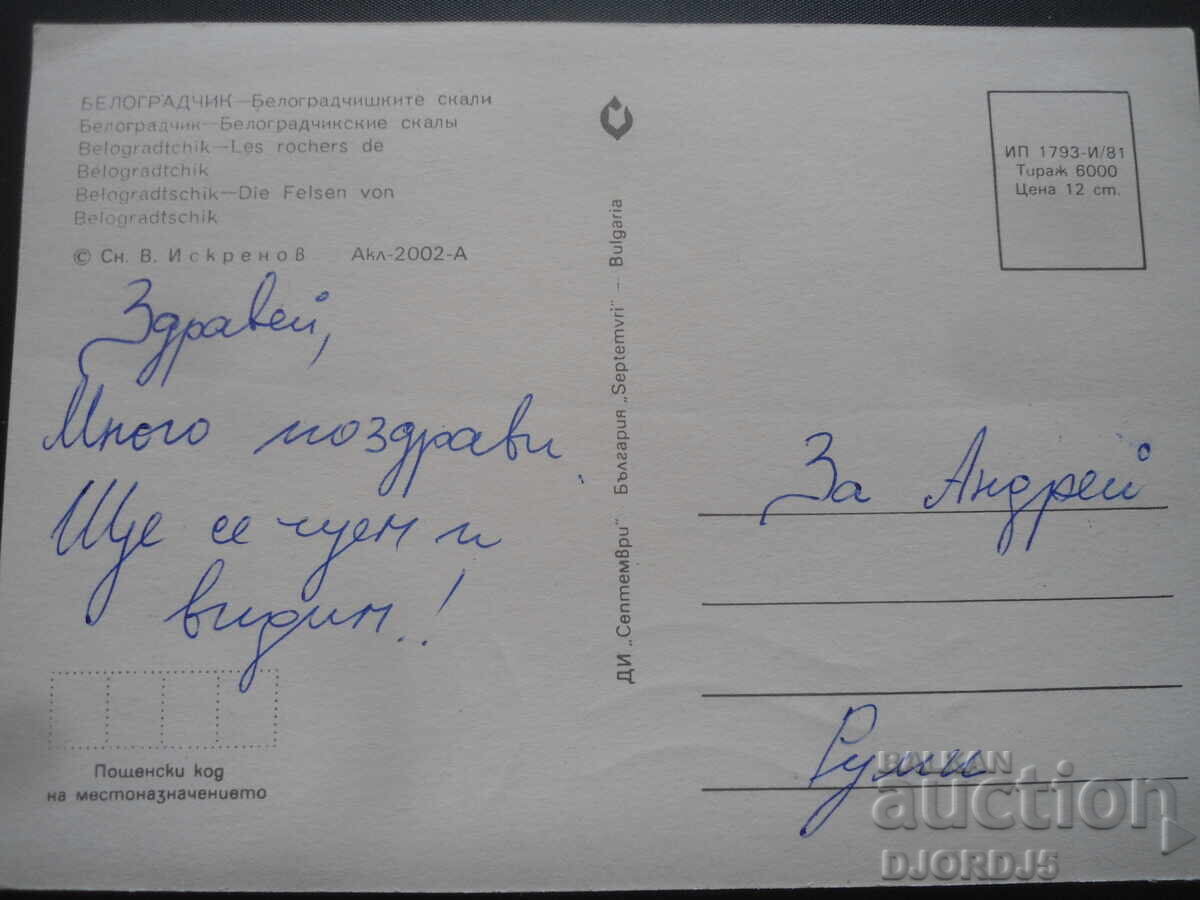 БЕЛОГРАДЧИК—Белоградчишките скали
Белоградчик—Белоградчикские скалы
Belogradtchik—Les rochers de
Bélogradtchik
Belogradtschik—Die Felsen von
Belogradtschik
© Сн. В. Искренов Акл-2002-А
Здравей,
Много поздрави.
Ще се чуем и
видим.!
Пощенски код
на местоназначението
ДИ „Септември“ България „Septemvri“ — Bulgaria
ИП 1793-И/81
Тираж 6000
Цена 12 ст.
За Андрей
Руми
BALKAN
auction
DJORDJ5